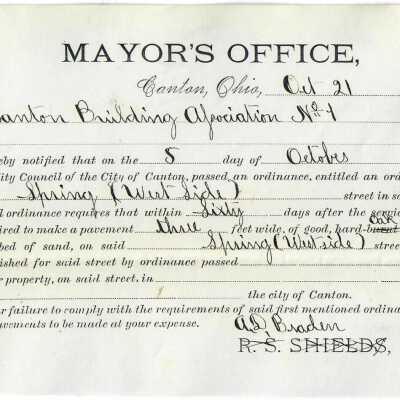 MAYOR'S OFFICE,
Canton, Ohio, Oct 21
anton Building Association No 1
eby notified that on the 8 day of October
ity Council of the City of Canton, passed an ordinance, entitled an or
Spring (West Side) street in sa
d ordinance requires that within Sixty days after the servic
ired to make a pavement three feet wide, of good, hard-burnt oak
bed of sand, on said Spring (West side) stree
ished for said street by ordinance passed
r property, on said street, in
the city of Canton.
r failure to comply with the requirements of said first mentioned ordina
avements to be made at your expense.
A.D. Braden
R. S. SHIELDS,